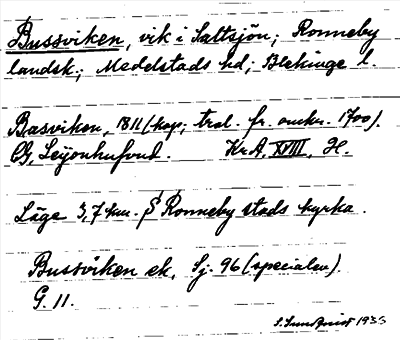 Bussviken, vik i Saltsjön; Ronneby
landsk; Medelstads hd; Blekinge l.
Basviken, 1811 (kop; trol. fr. omkr. 1700).
CG, Leijonhufvud. Kr.A. XVIII, H.
Läge 3,7 km. S Ronneby stads kyrka.
Bussviken ek, Sj. 96 (specialen).
G. 11.
S. Sundqvist 193